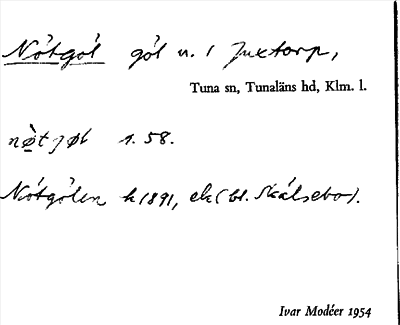 Nötgöl göl n. i Juxtorp,
Tuna sn, Tunaläns hd, Klm. l.
nø̀tjøl s. 58.
Nötgölen k 1891, ek (bl. Skälsebo).
Ivar Modéer 1954